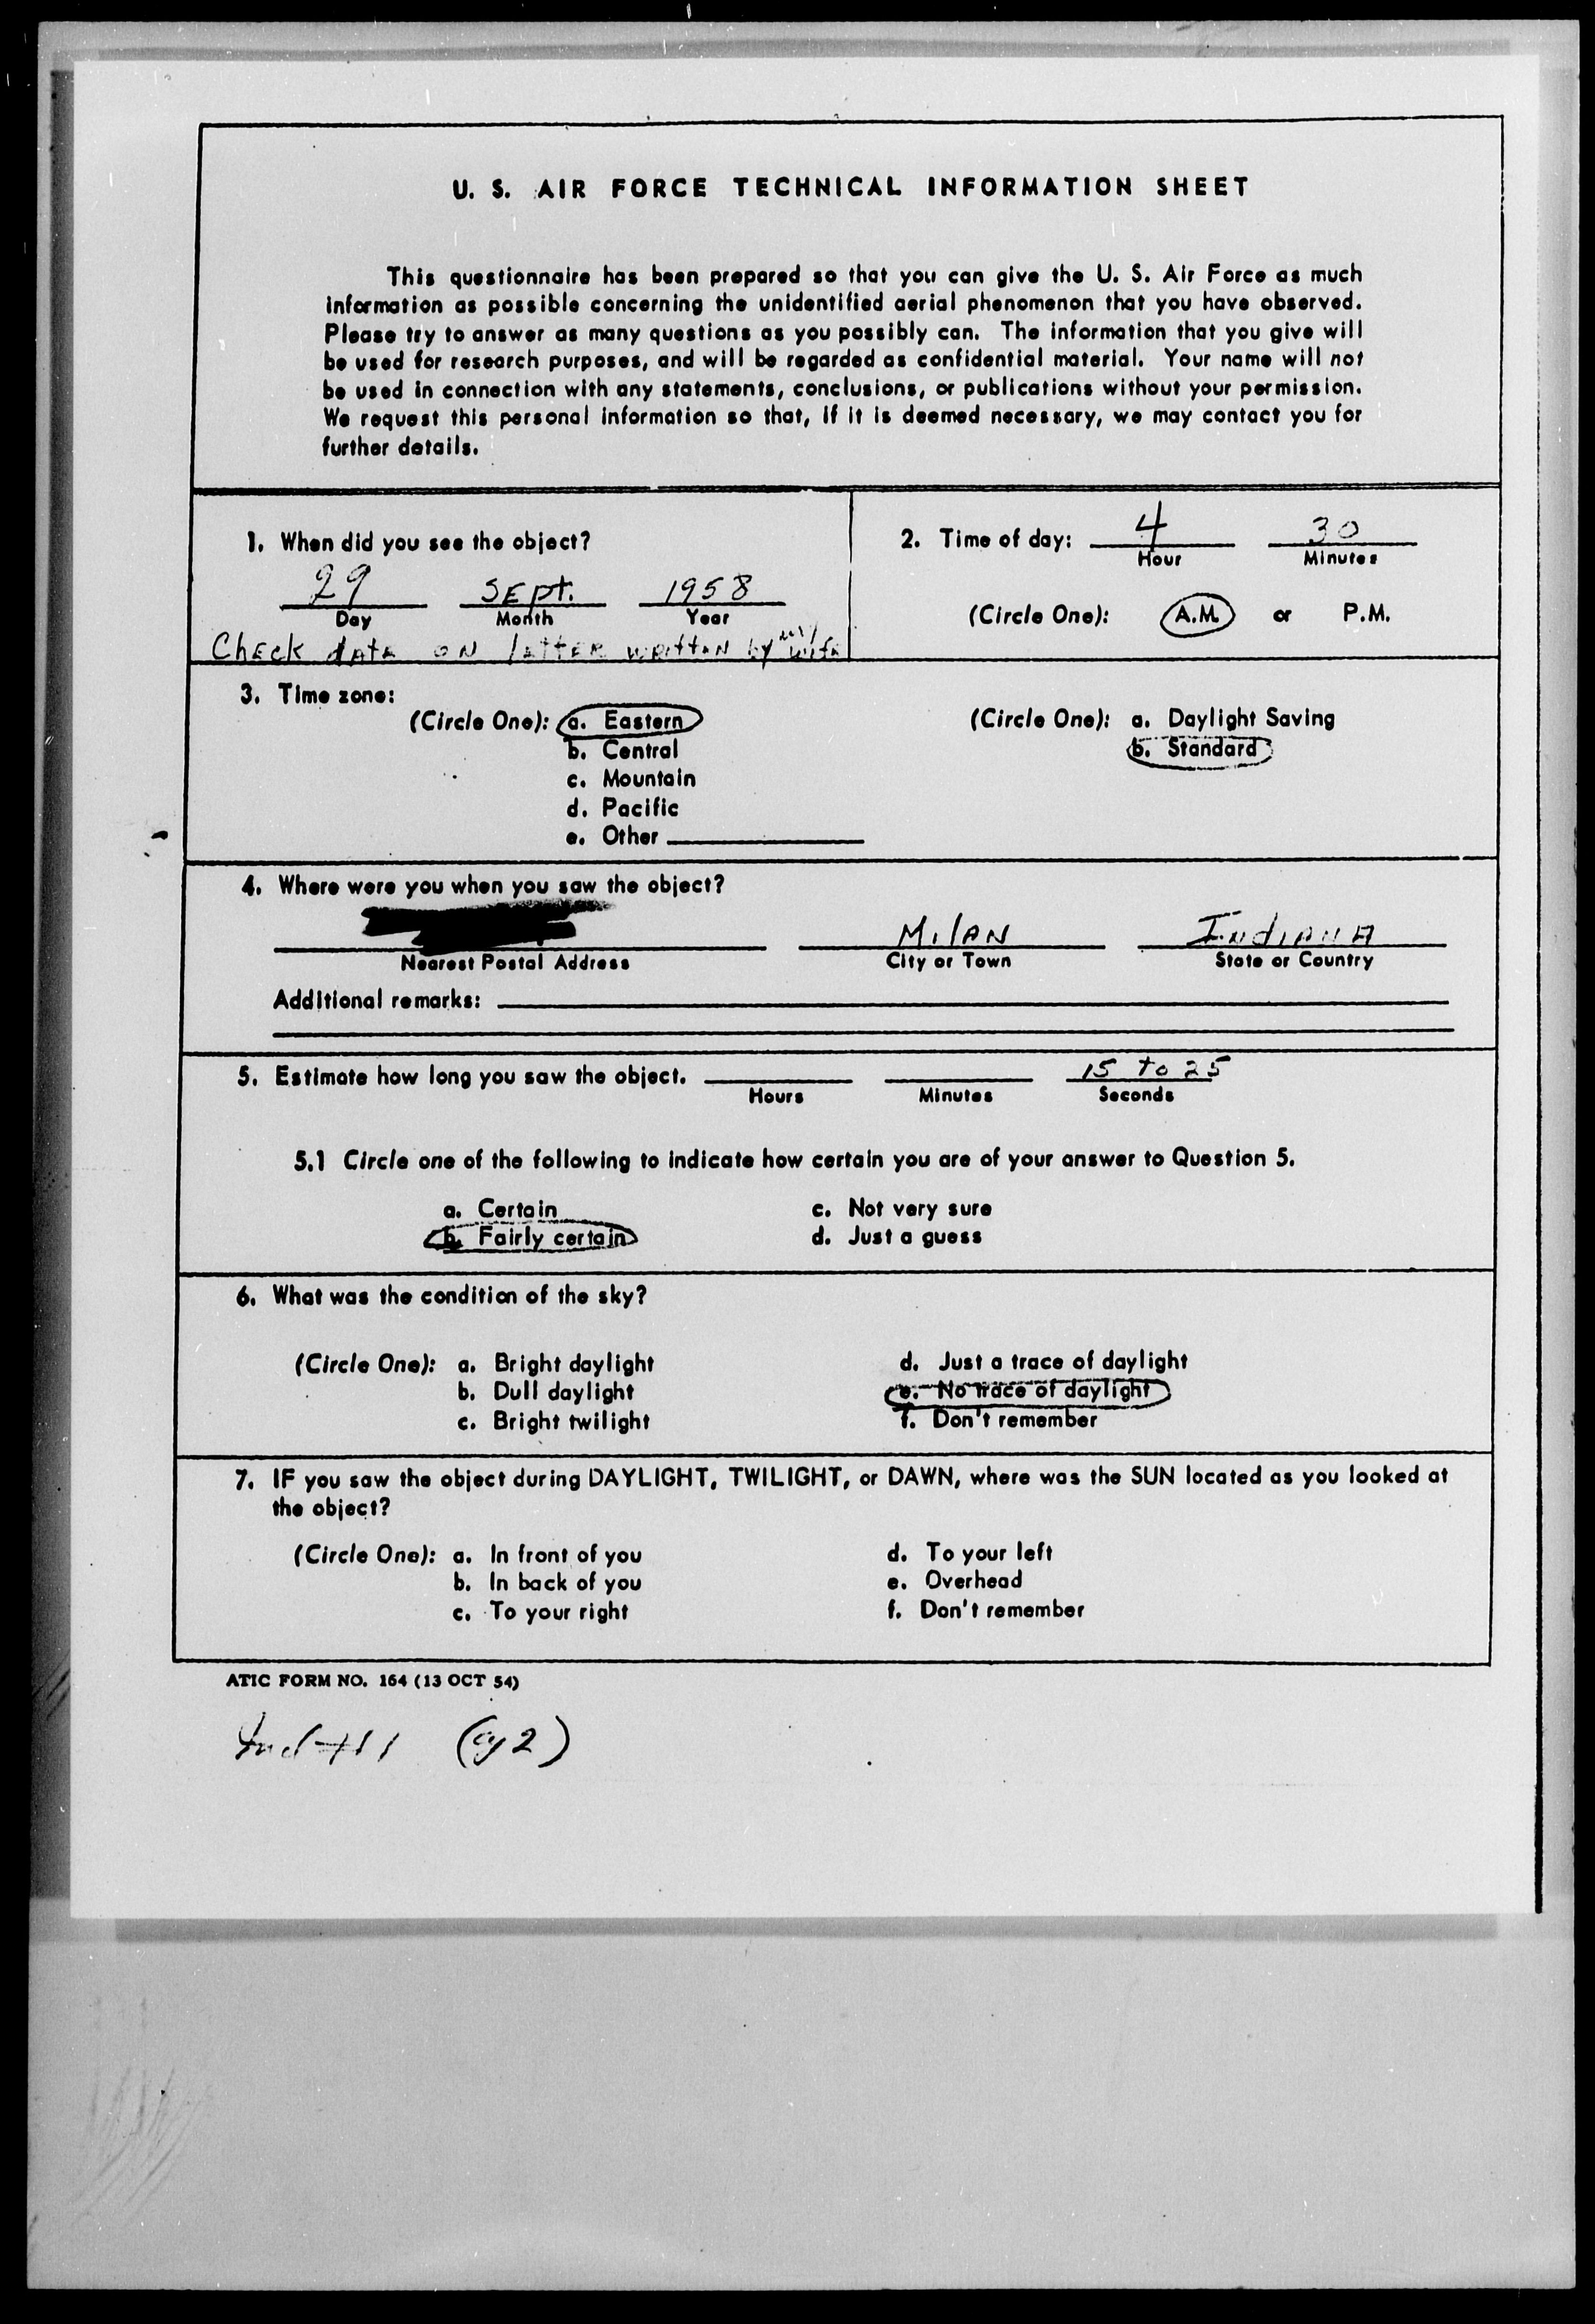 U. S. AIR FORCE TECHNICAL INFORMATION SHEET
This questionnaire has been prepared so that you can give the U. S. Air Force as much
information as possible concerning the unidentified aerial phenomenon that you have observed.
Please try to answer as many questions as you possibly can. The information that you give will
be used for research purposes, and will be regarded as confidential material. Your name will not
be used in connection with any statements, conclusions, or publications without your permission.
We request this personal information so that, if it is deemed necessary, we may contact you for
further details.
1. When did you see the object?
29 SEpt. 1958
Day Month Year
CHECK datE ON lEttER writtEN by my wife
2. Time of day: 4 30
Hour Minutes
(Circle One): A.M. or P.M.
3. Time zone:
(Circle One): a. Eastern
b. Central
c. Mountain
d. Pacific
e. Other
(Circle One): a. Daylight Saving
b. Standard
4. Where were you when you saw the object?
MilAN INdiANA
Nearest Postal Address City or Town State or Country
Additional remarks:
5. Estimate how long you saw the object. 15 to 25
Hours Minutes Seconds
5.1 Circle one of the following to indicate how certain you are of your answer to Question 5.
a. Certain c. Not very sure
b. Fairly certain d. Just a guess
6. What was the condition of the sky?
(Circle One): a. Bright daylight d. Just a trace of daylight
b. Dull daylight e. No trace of daylight
c. Bright twilight f. Don't remember
7. IF you saw the object during DAYLIGHT, TWILIGHT, or DAWN, where was the SUN located as you looked at
the object?
(Circle One): a. In front of you d. To your left
b. In back of you e. Overhead
c. To your right f. Don't remember
ATIC FORM NO. 164 (13 OCT 54)
(cy 2)